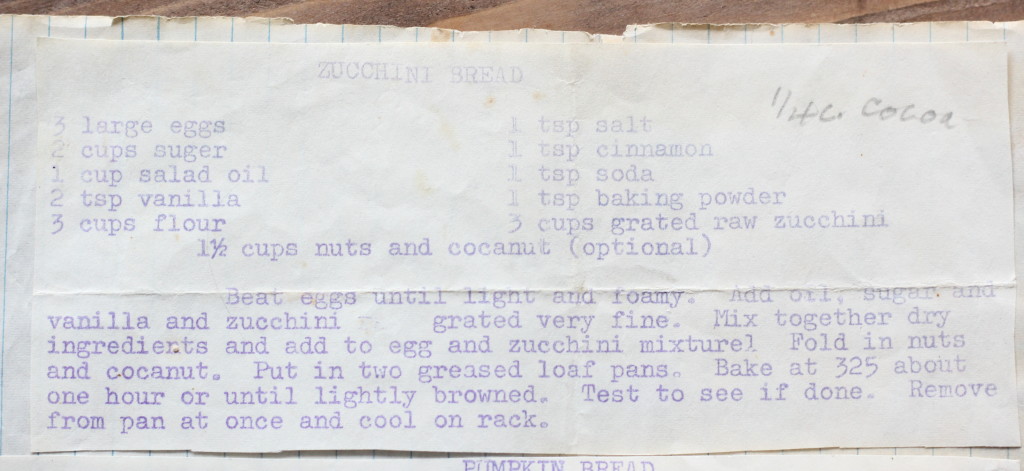 ZUCCHINI BREAD
1/4 c. cocoa
3 large eggs 1 tsp salt
2 cups suger 1 tsp cinnamon
1 cup salad oil 1 tsp soda
2 tsp vanilla 1 tsp baking powder
3 cups flour 3 cups grated raw zucchini
1½ cups nuts and cocanut (optional)
Beat eggs until light and foamy. Add oil, sugar and
vanilla and zucchini grated very fine. Mix together dry
ingredients and add to egg and zucchini mixturel Fold in nuts
and cocanut. Put in two greased loaf pans. Bake at 325 about
one hour or until lightly browned. Test to see if done. Remove
from pan at once and cool on rack.
PUMPKIN BREAD